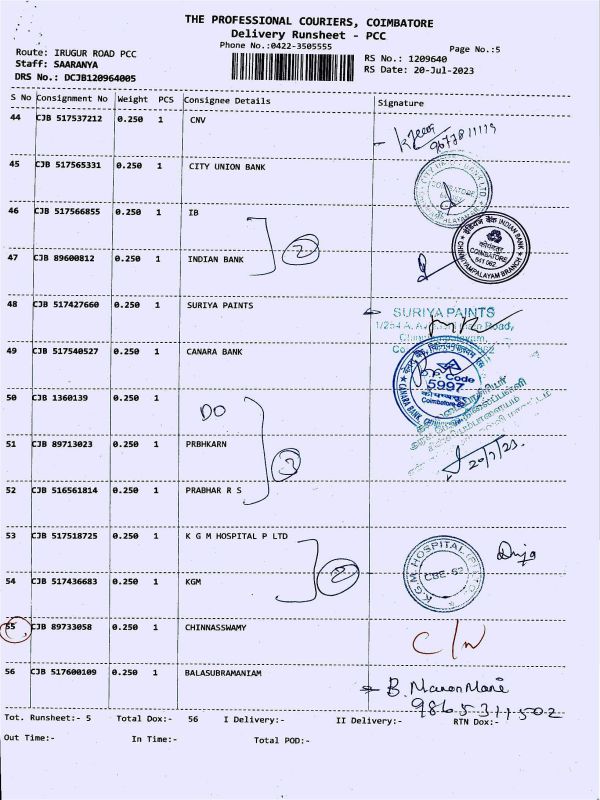 THE PROFESSIONAL COURIERS, COIMBATORE
Delivery Runsheet - PCC
Phone No.:0422-3505555
Page No.:5
Route: IRUGUR ROAD PCC
Staff: SAARANYA
DRS No.: DCJB120964005
RS No.: 1209640
RS Date: 20-Jul-2023
S No Consignment No Weight PCS Consignee Details Signature
44 CJB 517537212 0.250 1 CNV
45 CJB 517565331 0.250 1 CITY UNION BANK
46 CJB 517566855 0.250 1 IB
2
47 CJB 89600812 0.250 1 INDIAN BANK
INDIAN BANK
COIMBATORE
641 062
CHINNIYAMPALAYAM BRANCH
48 CJB 517427660 0.250 1 SURIYA PAINTS
SURIYA PAINTS
49 CJB 517540527 0.250 1 CANARA BANK
Code
5997
Coimbatore
CANARA BANK
50 CJB 1360139 0.250 1
DO
51 CJB 89713023 0.250 1 PRBHKARN
3
20/7/23
52 CJB 516561814 0.250 1 PRABHAR R S
53 CJB 517518725 0.250 1 K G M HOSPITAL P LTD
K.G.M. HOSPITAL (P) LTD
CBE-62
54 CJB 517436683 0.250 1 KGM
2
55 CJB 89733058 0.250 1 CHINNASSWAMY
C/N
56 CJB 517600109 0.250 1 BALASUBRAMANIAM
B. ManonMani
9865311502
Tot. Runsheet:- 5 Total Dox:- 56 I Delivery:- II Delivery:- RTN Dox:-
Out Time:- In Time:- Total POD:-